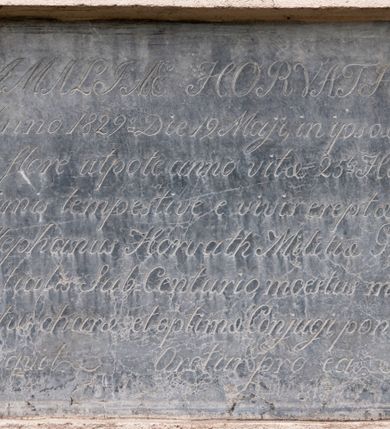 AMALIÆ HORVATH
Anno 1829° Die 19 Maji, in ipso
flore utpote anno vitæ 25to
tempestive e vivis erept
Stephanus Horvath Militiæ
Sub-Centurio moestus m
charæ et optimæ Conjugi
Oretur pro ea